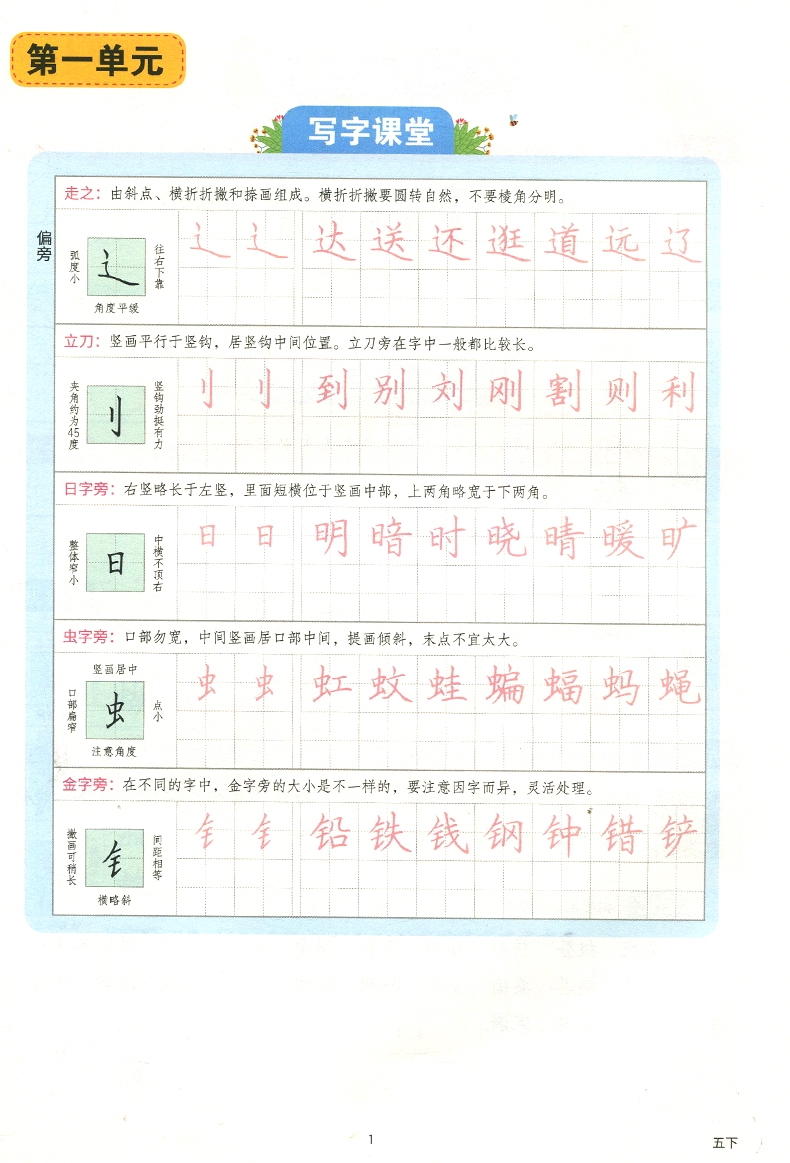 第一单元
写字课堂
偏旁
走之：由斜点、横折折撇和捺画组成。横折折撇要圆转自然，不要棱角分明。
弧度小
辶
往右下靠
角度平缓
辶 辶 达 送 还 逛 道 远 辽
立刀：竖画平行于竖钩，居竖钩中间位置。立刀旁在字中一般都比较长。
夹角约为45度
刂
竖钩劲挺有力
刂 刂 到 别 刘 刚 割 则 利
日字旁：右竖略长于左竖，里面短横位于竖画中部，上两角略宽于下两角。
整体窄小
日
中横不顶右
日 日 明 暗 时 晓 晴 暖 旷
虫字旁：口部勿宽，中间竖画居口部中间，提画倾斜，末点不宜太大。
竖画居中
口部扁窄
虫
点小
注意角度
虫 虫 虹 蚊 蛙 蝙 蝠 蚂 蝇
金字旁：在不同的字中，金字旁的大小是不一样的，要注意因字而异，灵活处理。
撇画可稍长
钅
间距相等
横略斜
钅 钅 铅 铁 钱 钢 钟 错 铲
1
五下